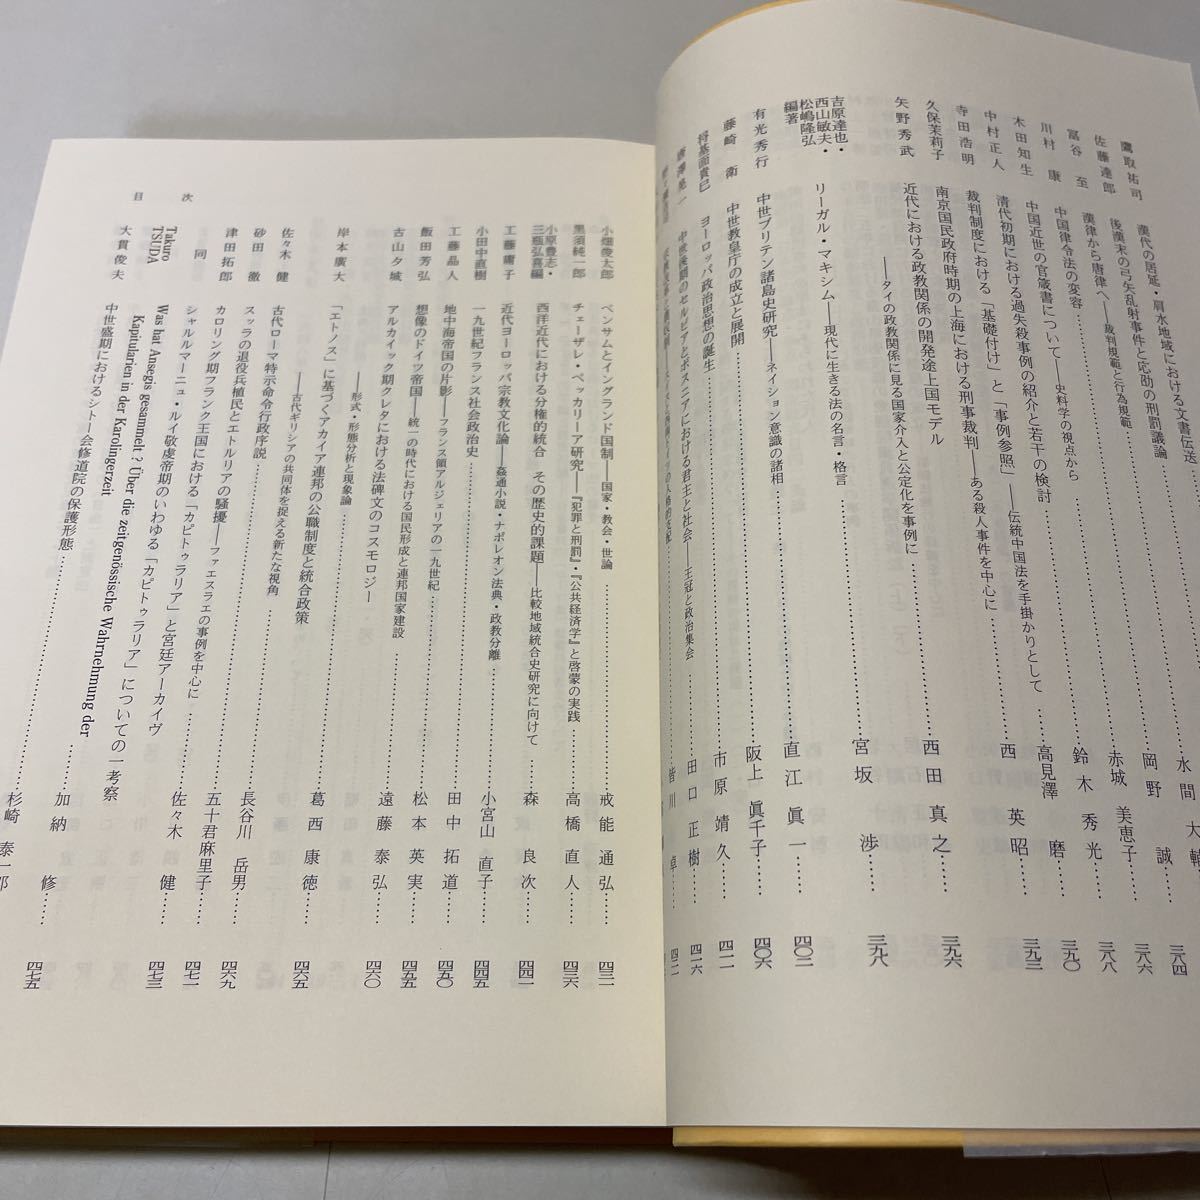 鷹取祐司 漢代の居延・肩水地域における文書伝送……水間大輔……三八四
佐藤達郎 後漢末の弓矢乱射事件と応劭の刑罰議論……岡野誠……三八六
冨谷至 漢律から唐律へ――裁判規範と行為規範……赤城美恵子……三八八
川村康 中国律令法の変容……鈴木秀光……三九〇
木田知生 中国近世の官蔵書について――史料学の視点から……高見澤磨……三九三
中村正人 清代初期における過失殺事例の紹介と若干の検討
寺田浩明 裁判制度における「基礎付け」と「事例参照」――伝統中国法を手掛かりとして……西英昭……
久保茉莉子 南京国民政府時期の上海における刑事裁判――ある殺人事件を中心に……西田真之……三九六
矢野秀武 近代における政教関係の開発途上国モデル
――タイの政教関係に見る国家介入と公定化を事例に……宮坂渉……三九八
吉原達也・西山敏夫・松嶋隆弘編著 リーガル・マキシム――現代に生きる法の名言・格言……直江眞一……四〇二
有光秀行 中世ブリテン諸島史研究――ネイション意識の諸相……阪上眞千子……四〇六
藤崎衛 中世教皇庁の成立と展開……市原靖久……四一一
将基面貴巳 ヨーロッパ政治思想の誕生……田口正樹……四一六
唐澤晃一 中世後期のセルビアとボスニアにおける君主と社会――王冠と政治集会……皆川卓……四二一
目次
小畑俊太郎 ベンサムとイングランド国制――国家・教会・世論……戒能通弘……四三一
黒須純一郎 チェーザレ・ベッカリーア研究――『犯罪と刑罰』・『公共経済学』と啓蒙の実践……高橋直人……四三六
小原豊志・三瓶弘喜編 西洋近代における分権的統合 その歴史的課題――比較地域統合史研究に向けて……森良次……四四一
工藤庸子 近代ヨーロッパ宗教文化論――姦通小説・ナポレオン法典・政教分離
小田中直樹 一九世紀フランス社会政治史……小宮山直子……四四五
工藤晶人 地中海帝国の片影――フランス領アルジェリアの一九世紀……田中拓道……四五〇
飯田芳弘 想像のドイツ帝国――統一の時代における国民形成と連邦国家建設……松本英実……四五五
古山夕城 アルカイック期クレタにおける法碑文のコスモロジー
――形式・形態分析と現象論……遠藤泰弘……四六〇
岸本廣大 「エトノス」に基づくアカイア連邦の公職制度と統合政策
――古代ギリシアの共同体を捉える新たな視角……葛西康徳……四六五
佐々木健 古代ローマ特示命令行政序説
砂田徹 スッラの退役兵植民とエトルリアの騒擾――ファエスラエの事例を中心に……長谷川岳男……四六九
津田拓郎 カロリング期フランク王国における「カピトゥラリア」……五十君麻里子……四七一
同 シャルルマーニュ・ルイ敬虔帝期のいわゆる「カピトゥラリア」と宮廷アーカイヴ……佐々木健……四七三
Takuro TSUDA Was hat Ansegis gesammelt? Über die zeitgenössische Wahrnehmung der
Kapitularien in der Karolingerzeit
大貫俊夫 中世盛期におけるシトー会修道院の保護形態……加納修……四七五
杉崎泰一郎